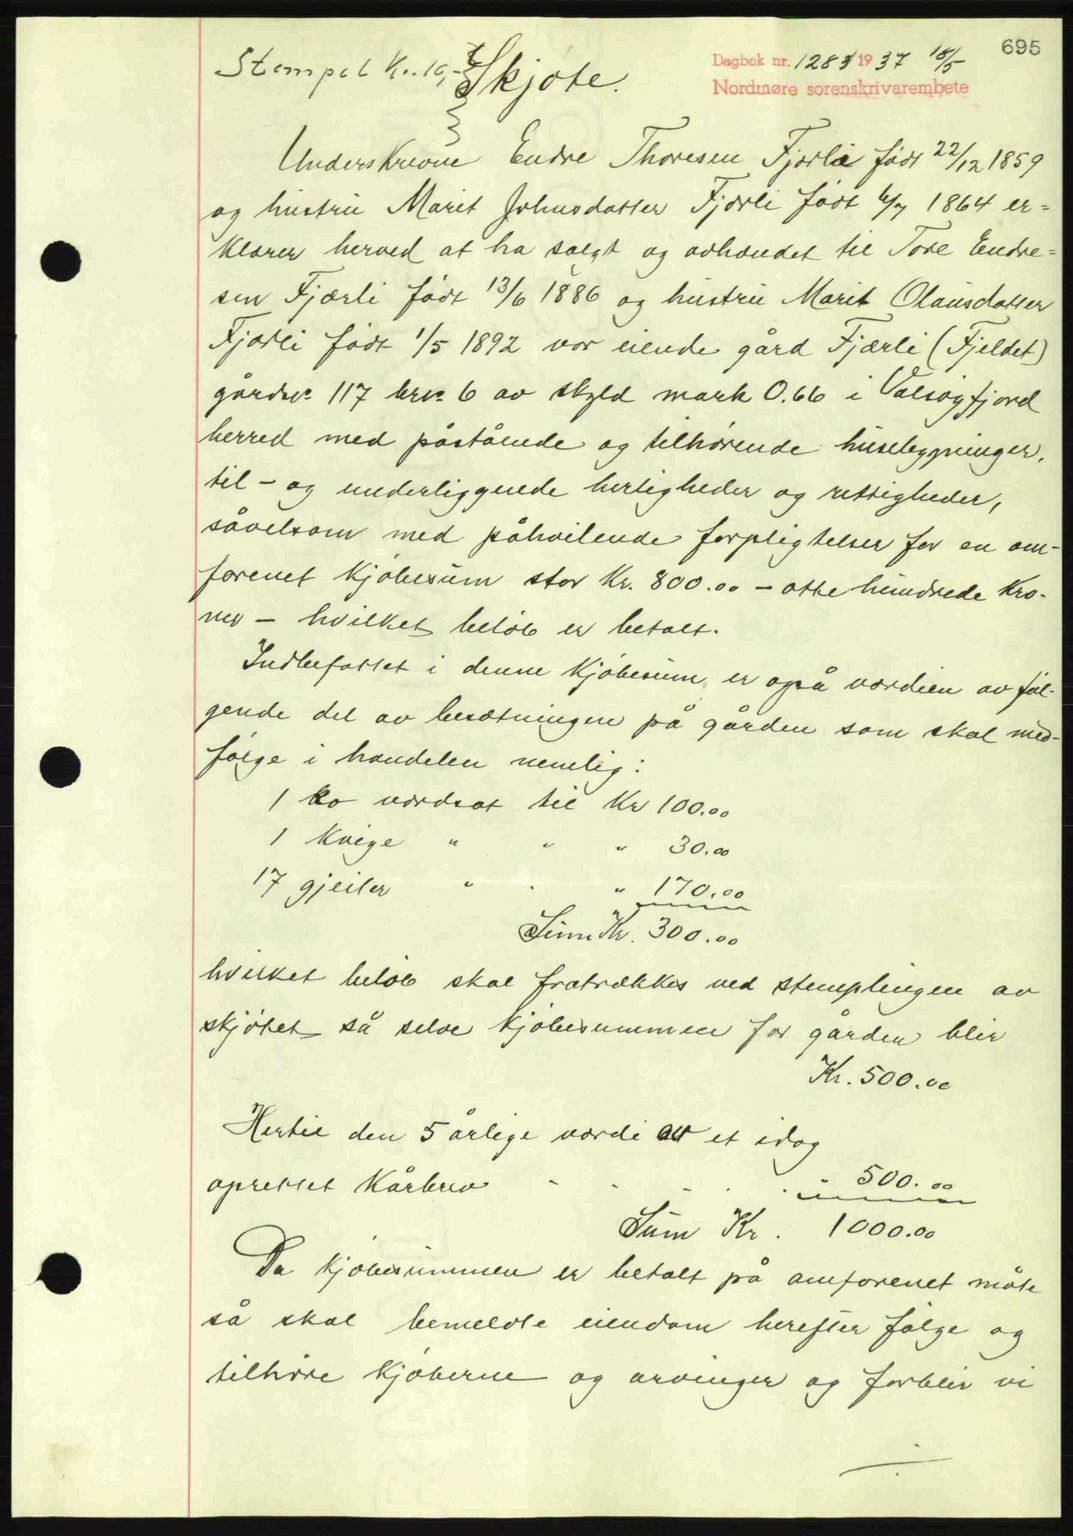 695
Stempel Kr. 10,-
Skjøte.
Dagbok nr. 1283 1937 18/5
Nordmøre sorenskrivarembete
Underskrevne Endre Thoresen Fjærli født 22/12 1859
og hustru Marit Johnsdatter Fjærli født 6/7 1864 er=
klærer herved at ha solgt og avhændet til Tore Endre=
sen Fjærli født 13/6 1886 og hustru Marit Olausdatter
Fjærli født 1/5 1892 vor eiende gård Fjærli (Fjeldet)
gårdsnr 117 brnr 6 av skyld mark 0.66 i Valsøyfjord
herred med påstående og tilhørende husebygninger,
til- og underliggende herligheder og rettigheder,
såvelsom med påhvilende forpligtelser for en om-
forenet kjøbesum stor Kr. 800.00 - otte hundrede kro-
ner - hvilket beløb er betalt.
Indbefattet i denne kjøbesum er også værdien av føl-
gende del av besætningen på gården som skal med-
følge i handelen nemlig:
1 ko værdsat til Kr 100.00
1 kvige " " " 30.00
17 gjeiter " " " 170.00
Sum Kr. 300.00
hvilket beløb skal fratrækkes ved stemplingen av
skjøtet så selve kjøbesummen for gården blir
Kr. 500.00
Hertil den 5 årlige værdi av et idag
oprettet kårbrev - - - . . " 500.00
Sum Kr. 1000.00
Da kjøbesummen er betalt på omforenet måte
så skal bemeldte eiendom herefter følge og
tilhøre kjøberne og arvinger og forblir vi